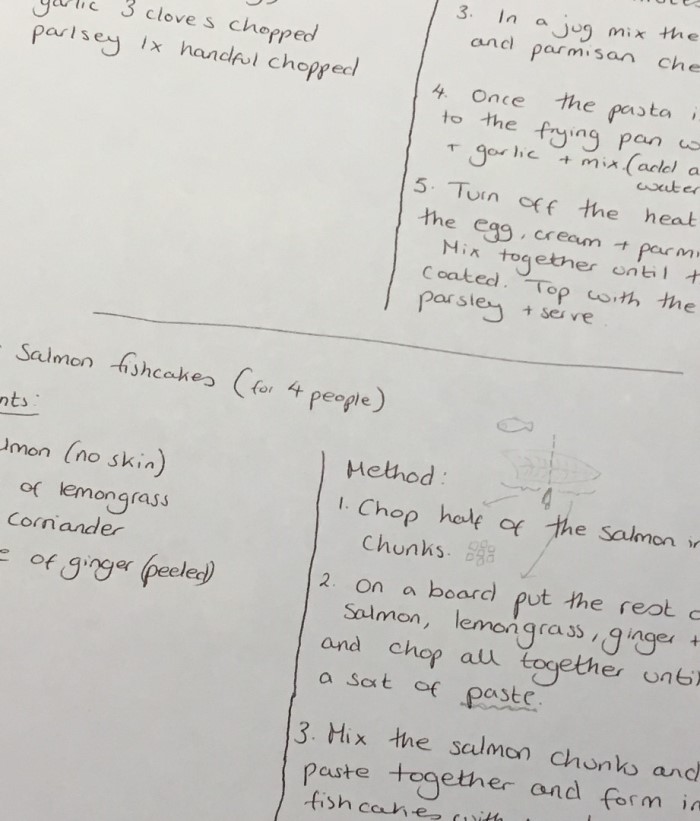 garlic 3 cloves chopped
parlsey 1x handful chopped
3. In a jug mix the
and parmisan che
4. Once the pasta i
to the frying pan w
+ garlic + mix. (add a
water
5. Turn off the heat
the egg, cream + parmi
Mix together until t
coated. Top with the
parsley + serve.
Salmon fishcakes (for 4 people)
nts:
lmon (no skin)
of lemongrass
corriander
e of ginger (peeled)
Method:
1. Chop half of the salmon in
chunks.
2. On a board put the rest o
salmon, lemongrass, ginger +
and chop all together until
a sort of paste.
3. Mix the salmon chunks and
paste together and form in
fishcakes with